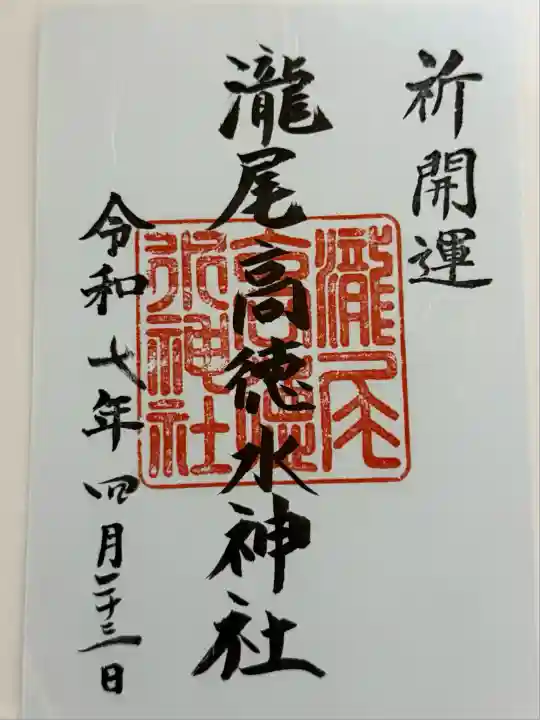 祈開運
瀧尾高徳水神社
令和七年四月二十三日
瀧尾
高徳
水神社